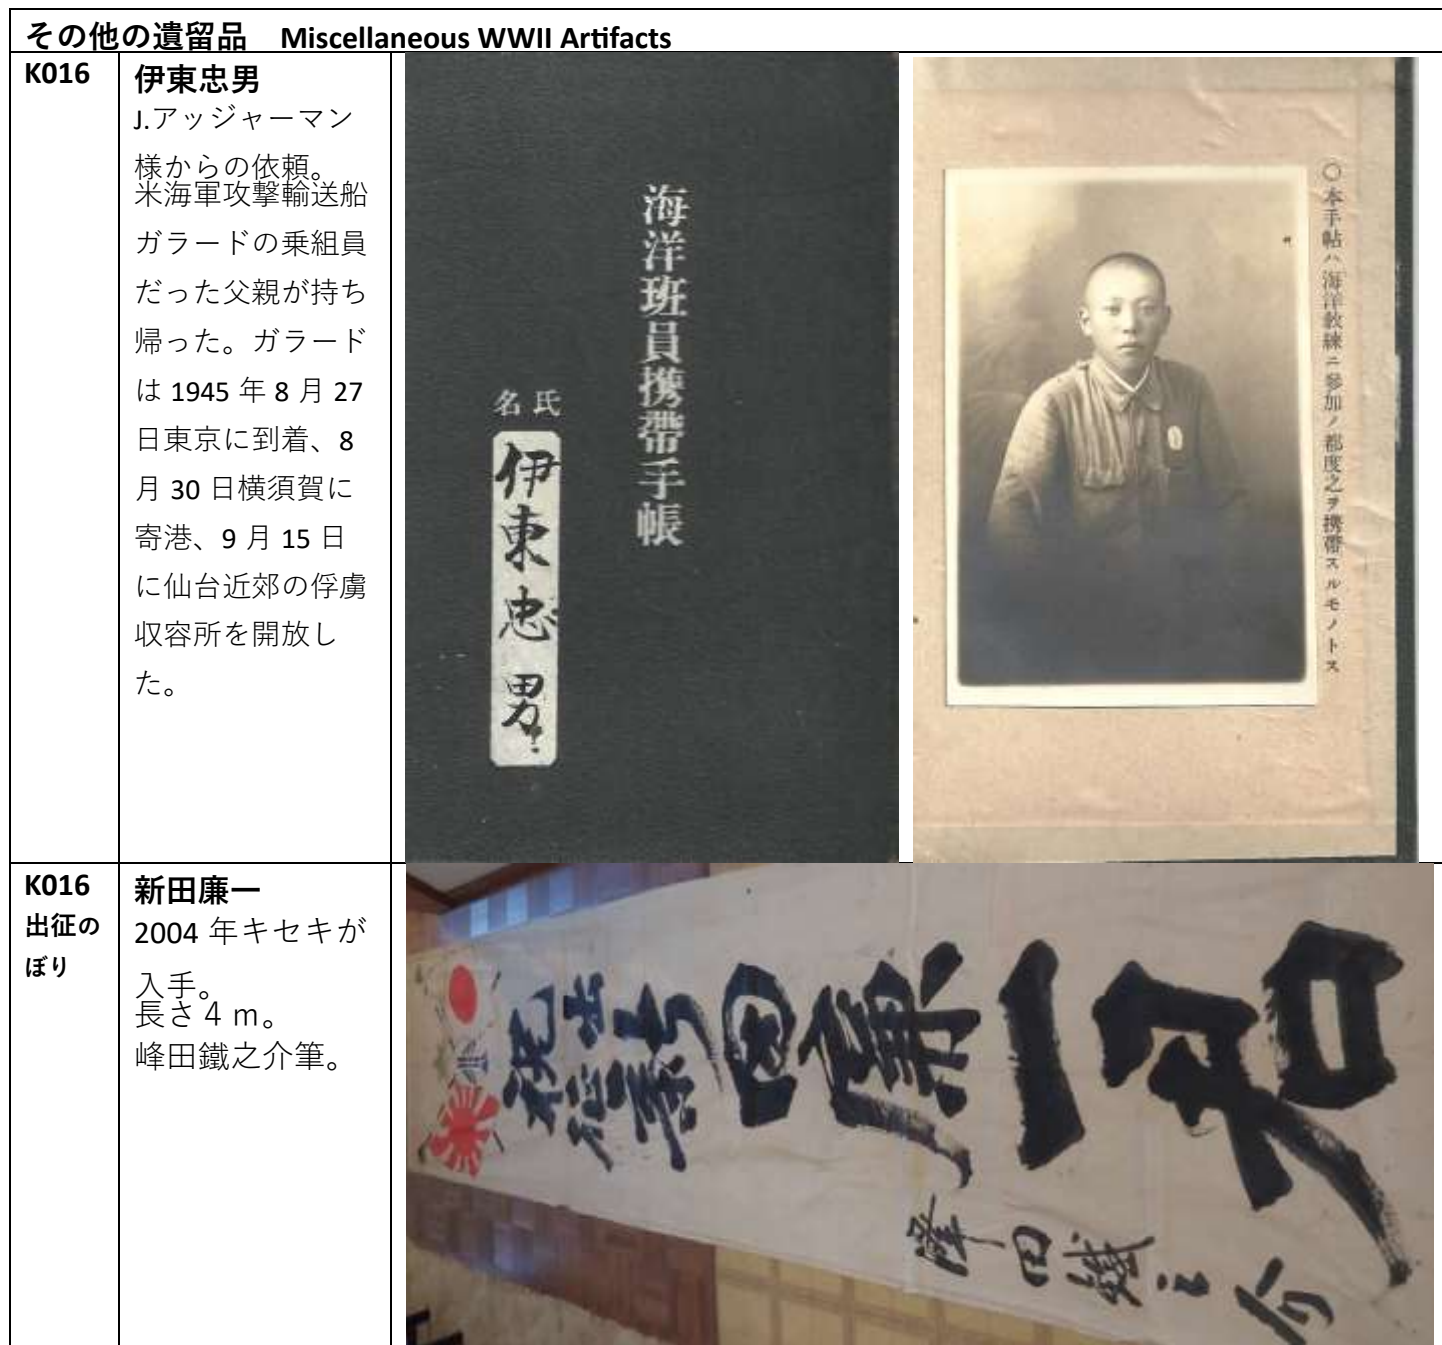 その他の遺留品 Miscellaneous WWII Artifacts
K016
伊東忠男
J.アッジャーマン
様からの依頼。
米海軍攻撃輸送船
ガラードの乗組員
だった父親が持ち
帰った。ガラード
は 1945 年 8 月 27
日東京に到着、8
月 30 日横須賀に
寄港、9 月 15 日
に仙台近郊の俘虜
収容所を開放し
た。
海洋班員携帶手帳
氏名
伊東忠男
〇本手帖ハ海洋教練ニ參加ノ都度之ヲ携帶スルモノトス
K016
出征の
ぼり
新田廉一
2004 年キセキが
入手。
長さ４ｍ。
峰田鐵之介筆。
祝出征新田廉一君
峰田鐵之介